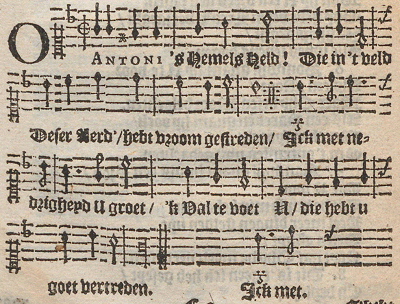 O ANTONI's Hemels Held! Die in't veld
Deser Aerd'/hebt vroom gestreden/ Ick met ne-
drigheyd U groet/ 'k Val te voet U/ die hebt u
goet vertreden. Ick met.